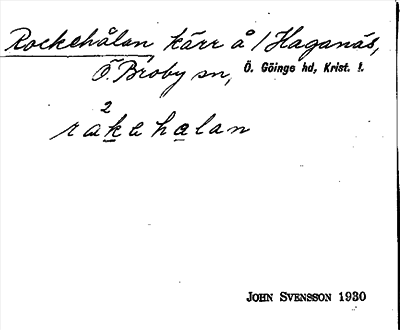 Rockehålan kärr å / Haganäs,
Ö. Broby sn, Ö. Göinge hd, Krist. l.
2
råkehalan
JOHN SVENSSON 1930